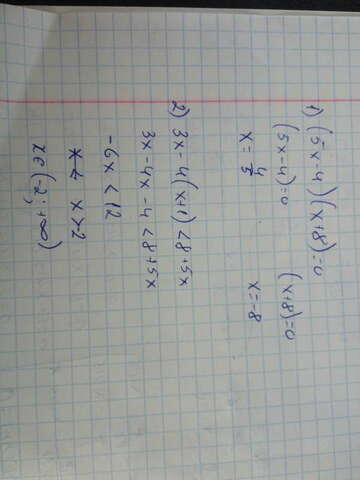 1) (5x-4)(x+8)=0
(5x-4)=0 (x+8)=0
x=4/5 x=-8
2) 3x-4(x+1)<8+5x
3x-4x-4<8+5x
-6x<12
x< x>-2
x∈(-2;+∞)